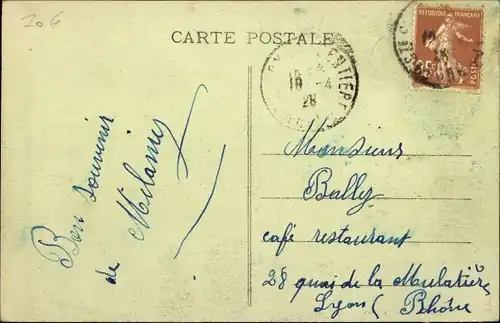 Io6
CARTE POSTALE
REPUBLIQUE FRANÇAISE
18 -4
28
Bon souvenir
de Mélanie
Monsieur
Bally
café restaurant
28 quai de la Mulatière
Lyon (Rhône